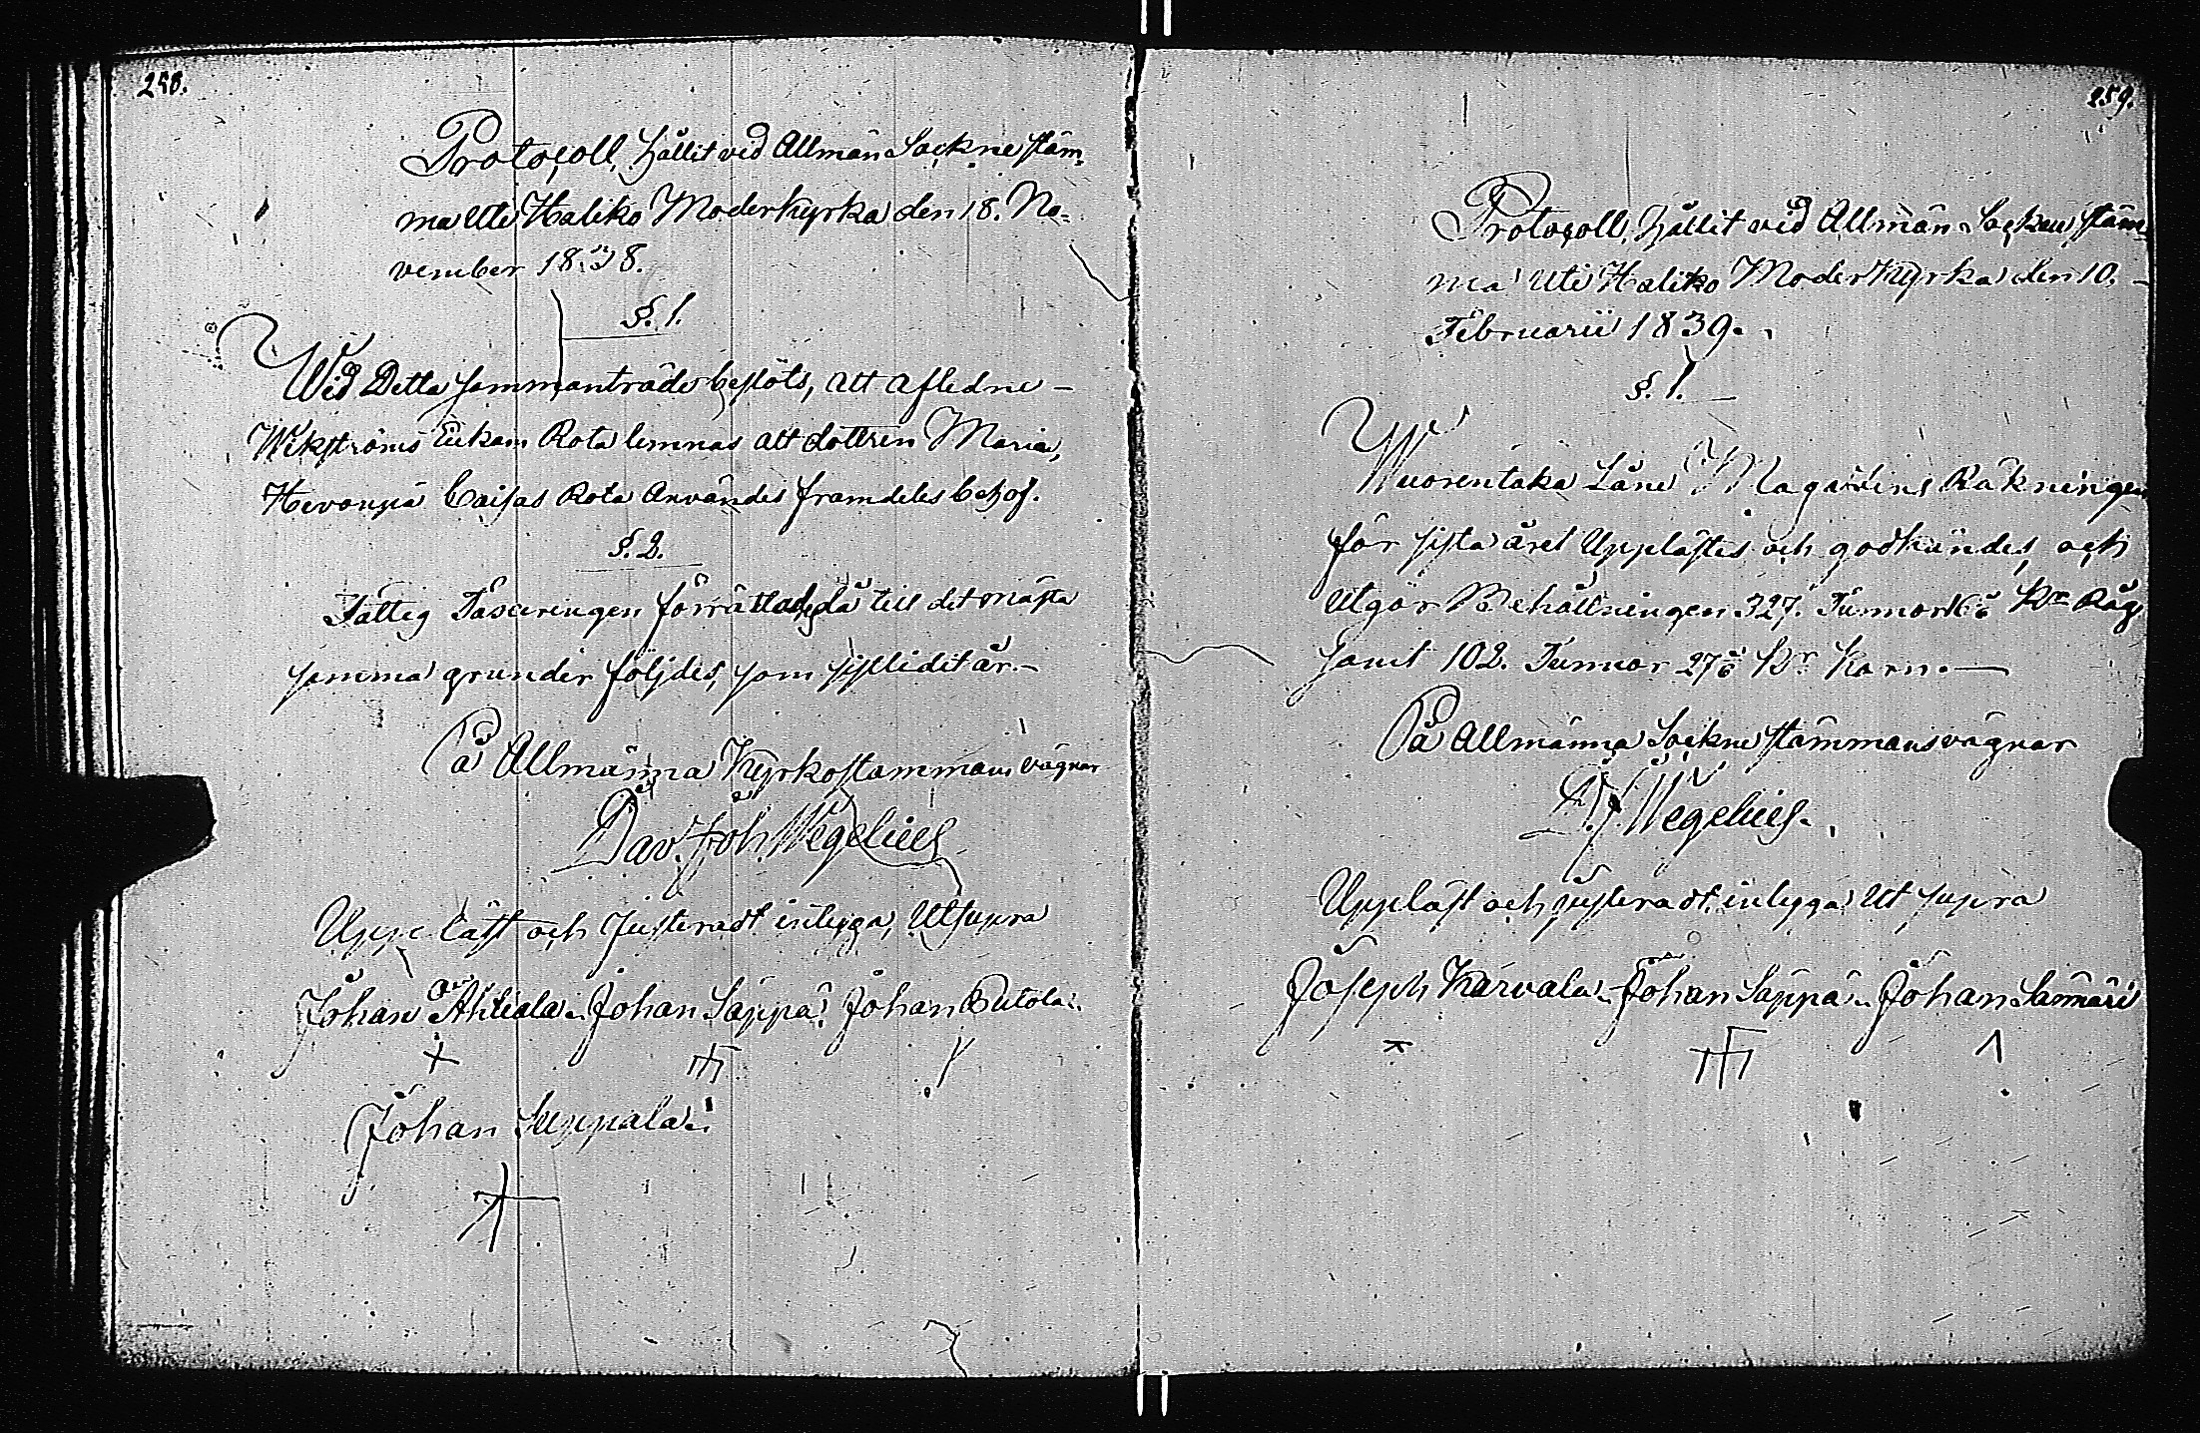 258.
Protocoll, hållit vid Allmän Sockne ståm¬
ma uti Haliko Moderkyrka den 18. No=
vember 1838.
§. 1.
Wid Detta sammanträde beslöts, att afledne –
Wikströms Enkan Rota lemnas att dottren Maria,
Hevonpä Caisas Rota Användes framdeles behof.
§. 2.
Fattig Taxeringen förrättades då till det mästa
samma grunder följdes, som sistlidit år. –
På Allmänna Kyrkostammans vägnar
Dav. Joh. Wegelius
Uppläst och Justeradt intyga, Ut supra
Johan Ahtiala. Johan Säppä. Johan Putola.
Johan Suppala.
259.
Protocoll, hållit vid Allmän Socken stäm¬
ma uti Haliko Moderkyrka den 10. –
Februarii 1839.
§. 1.
Wuorentaka Låne Magasins Räkningen
för sista året Upplästes och godkändes, och
utgör Behållningen 327. Tunnor 16 Kr Råg
samt 102. Tunnor 27 Kr Korn. –
På Allmänna Sockne stämmans vägnar
D. J. Wegelius.
Uppläst och justeradt, intyga Ut supra
Joseph Karvala. Johan Säppä. Johan Sammari